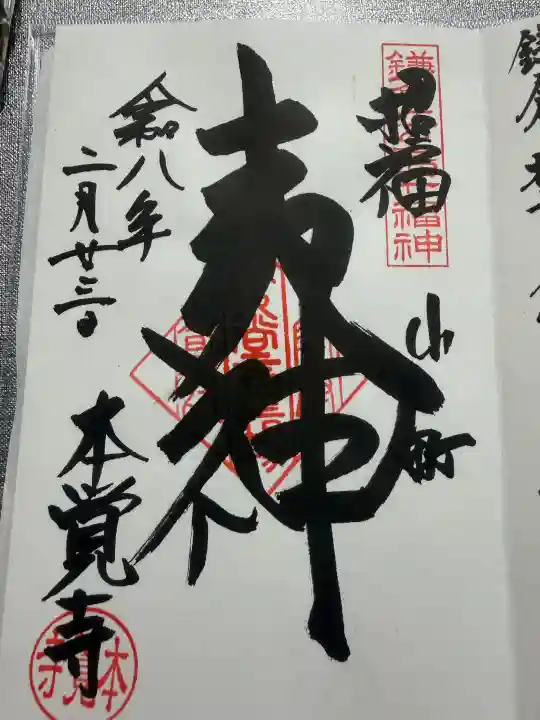 鎌倉
鎌倉七福神
招福
小町
夷神
令和八年
二月廿三日
本覚寺
本覚寺